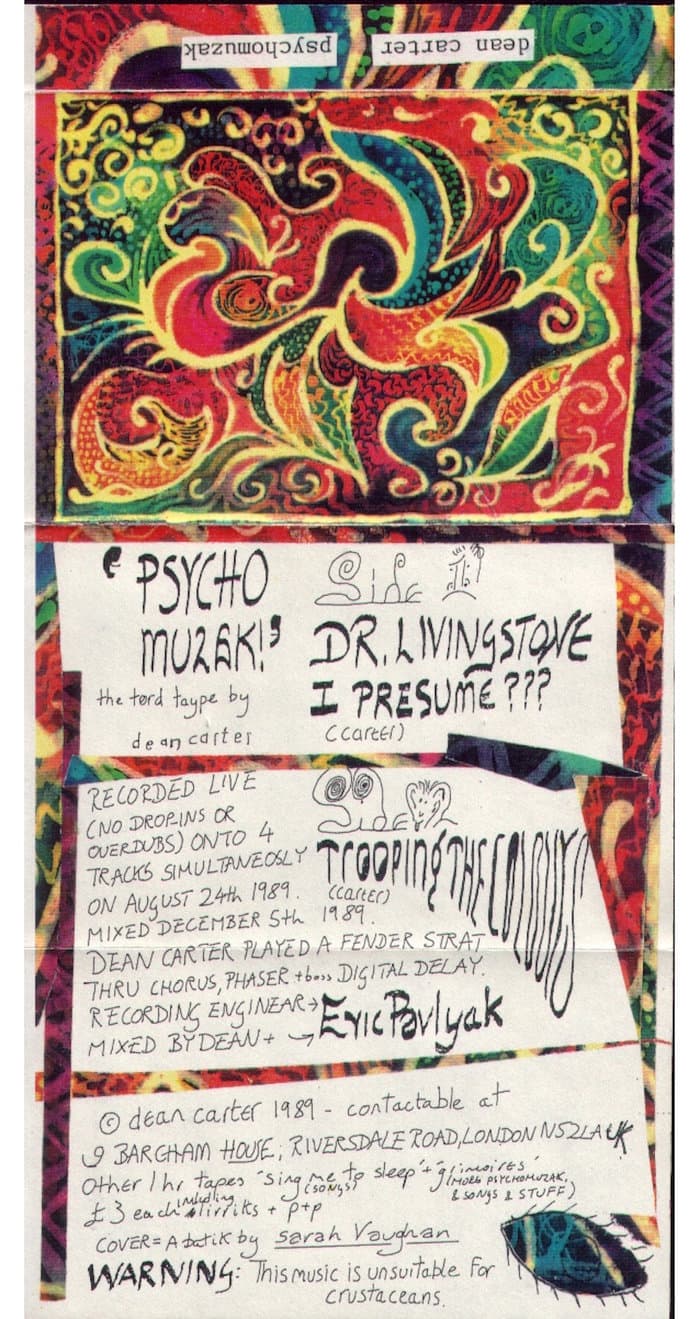 dean carter
psychomuzak
"PSYCHO
MUZAK!"
the tord taype by
dean carter
Side 1
DR. LIVINGSTONE
I PRESUME???
(carter)
RECORDED LIVE
(NO DROP.INS OR
OVERDUBS) ONTO 4
TRACKS SIMULTANEOSLY
ON AUGUST 24th 1989.
MIXED DECEMBER 5th 1989.
Side
TROOPING THE COLOURS
(carter)
DEAN CARTER PLAYED A FENDER STRAT
THRU CHORUS, PHASER + boss DIGITAL DELAY.
RECORDING ENGINEAR →
MIXED BY DEAN + →
Eric Pavlyak
© dean carter 1989 - contactable at
9 BARGHAM HOUSE, RIVERSDALE ROAD, LONDON N52LA UK
Other 1 hr tapes "sing me to sleep" + "grimoires"
(SONGS) (MORE PSYCHOMUZAK,
& SONGS & STUFF)
£3 each including lirriks + p+p
COVER = A batik by Sarah Vaughan
WARNING: This music is unsuitable for
crustaceans.